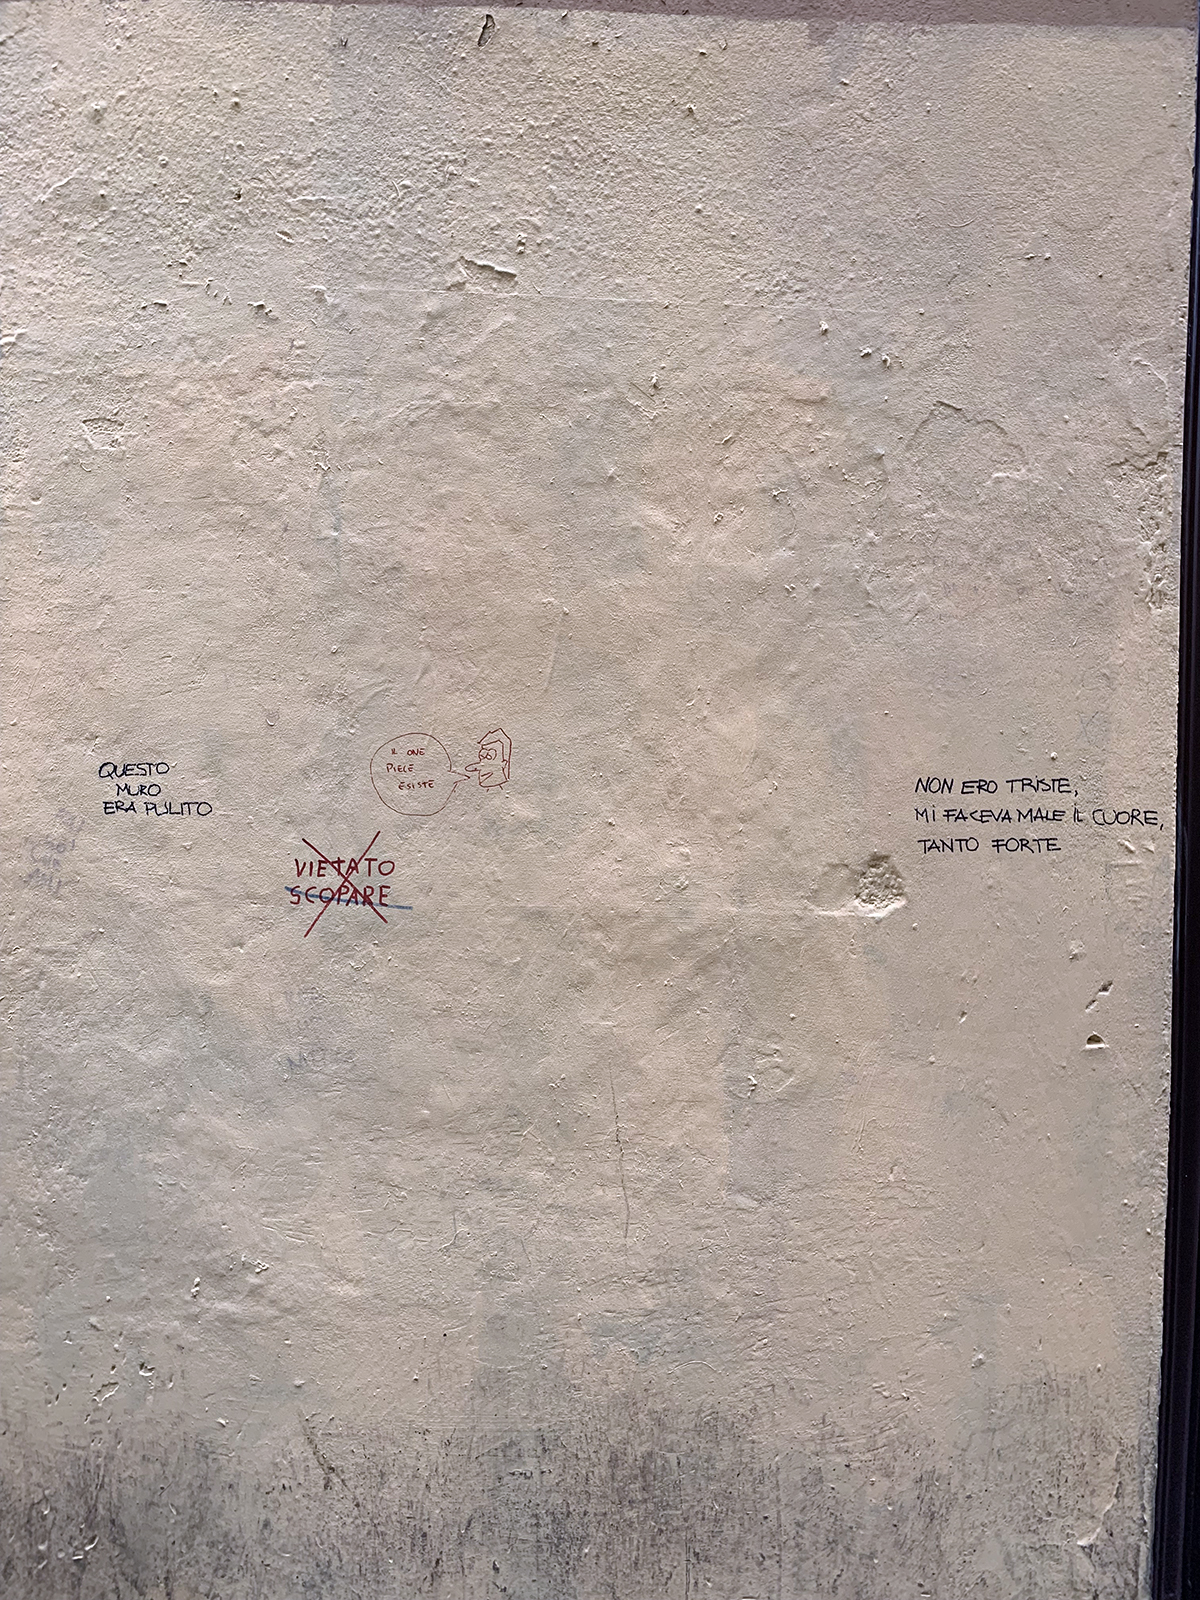 QUESTO
MURO
ERA PULITO
IL ONE
PIECE
ESISTE
VIETATO
SCOPARE
NON ERO TRISTE,
MI FACEVA MALE IL CUORE,
TANTO FORTE